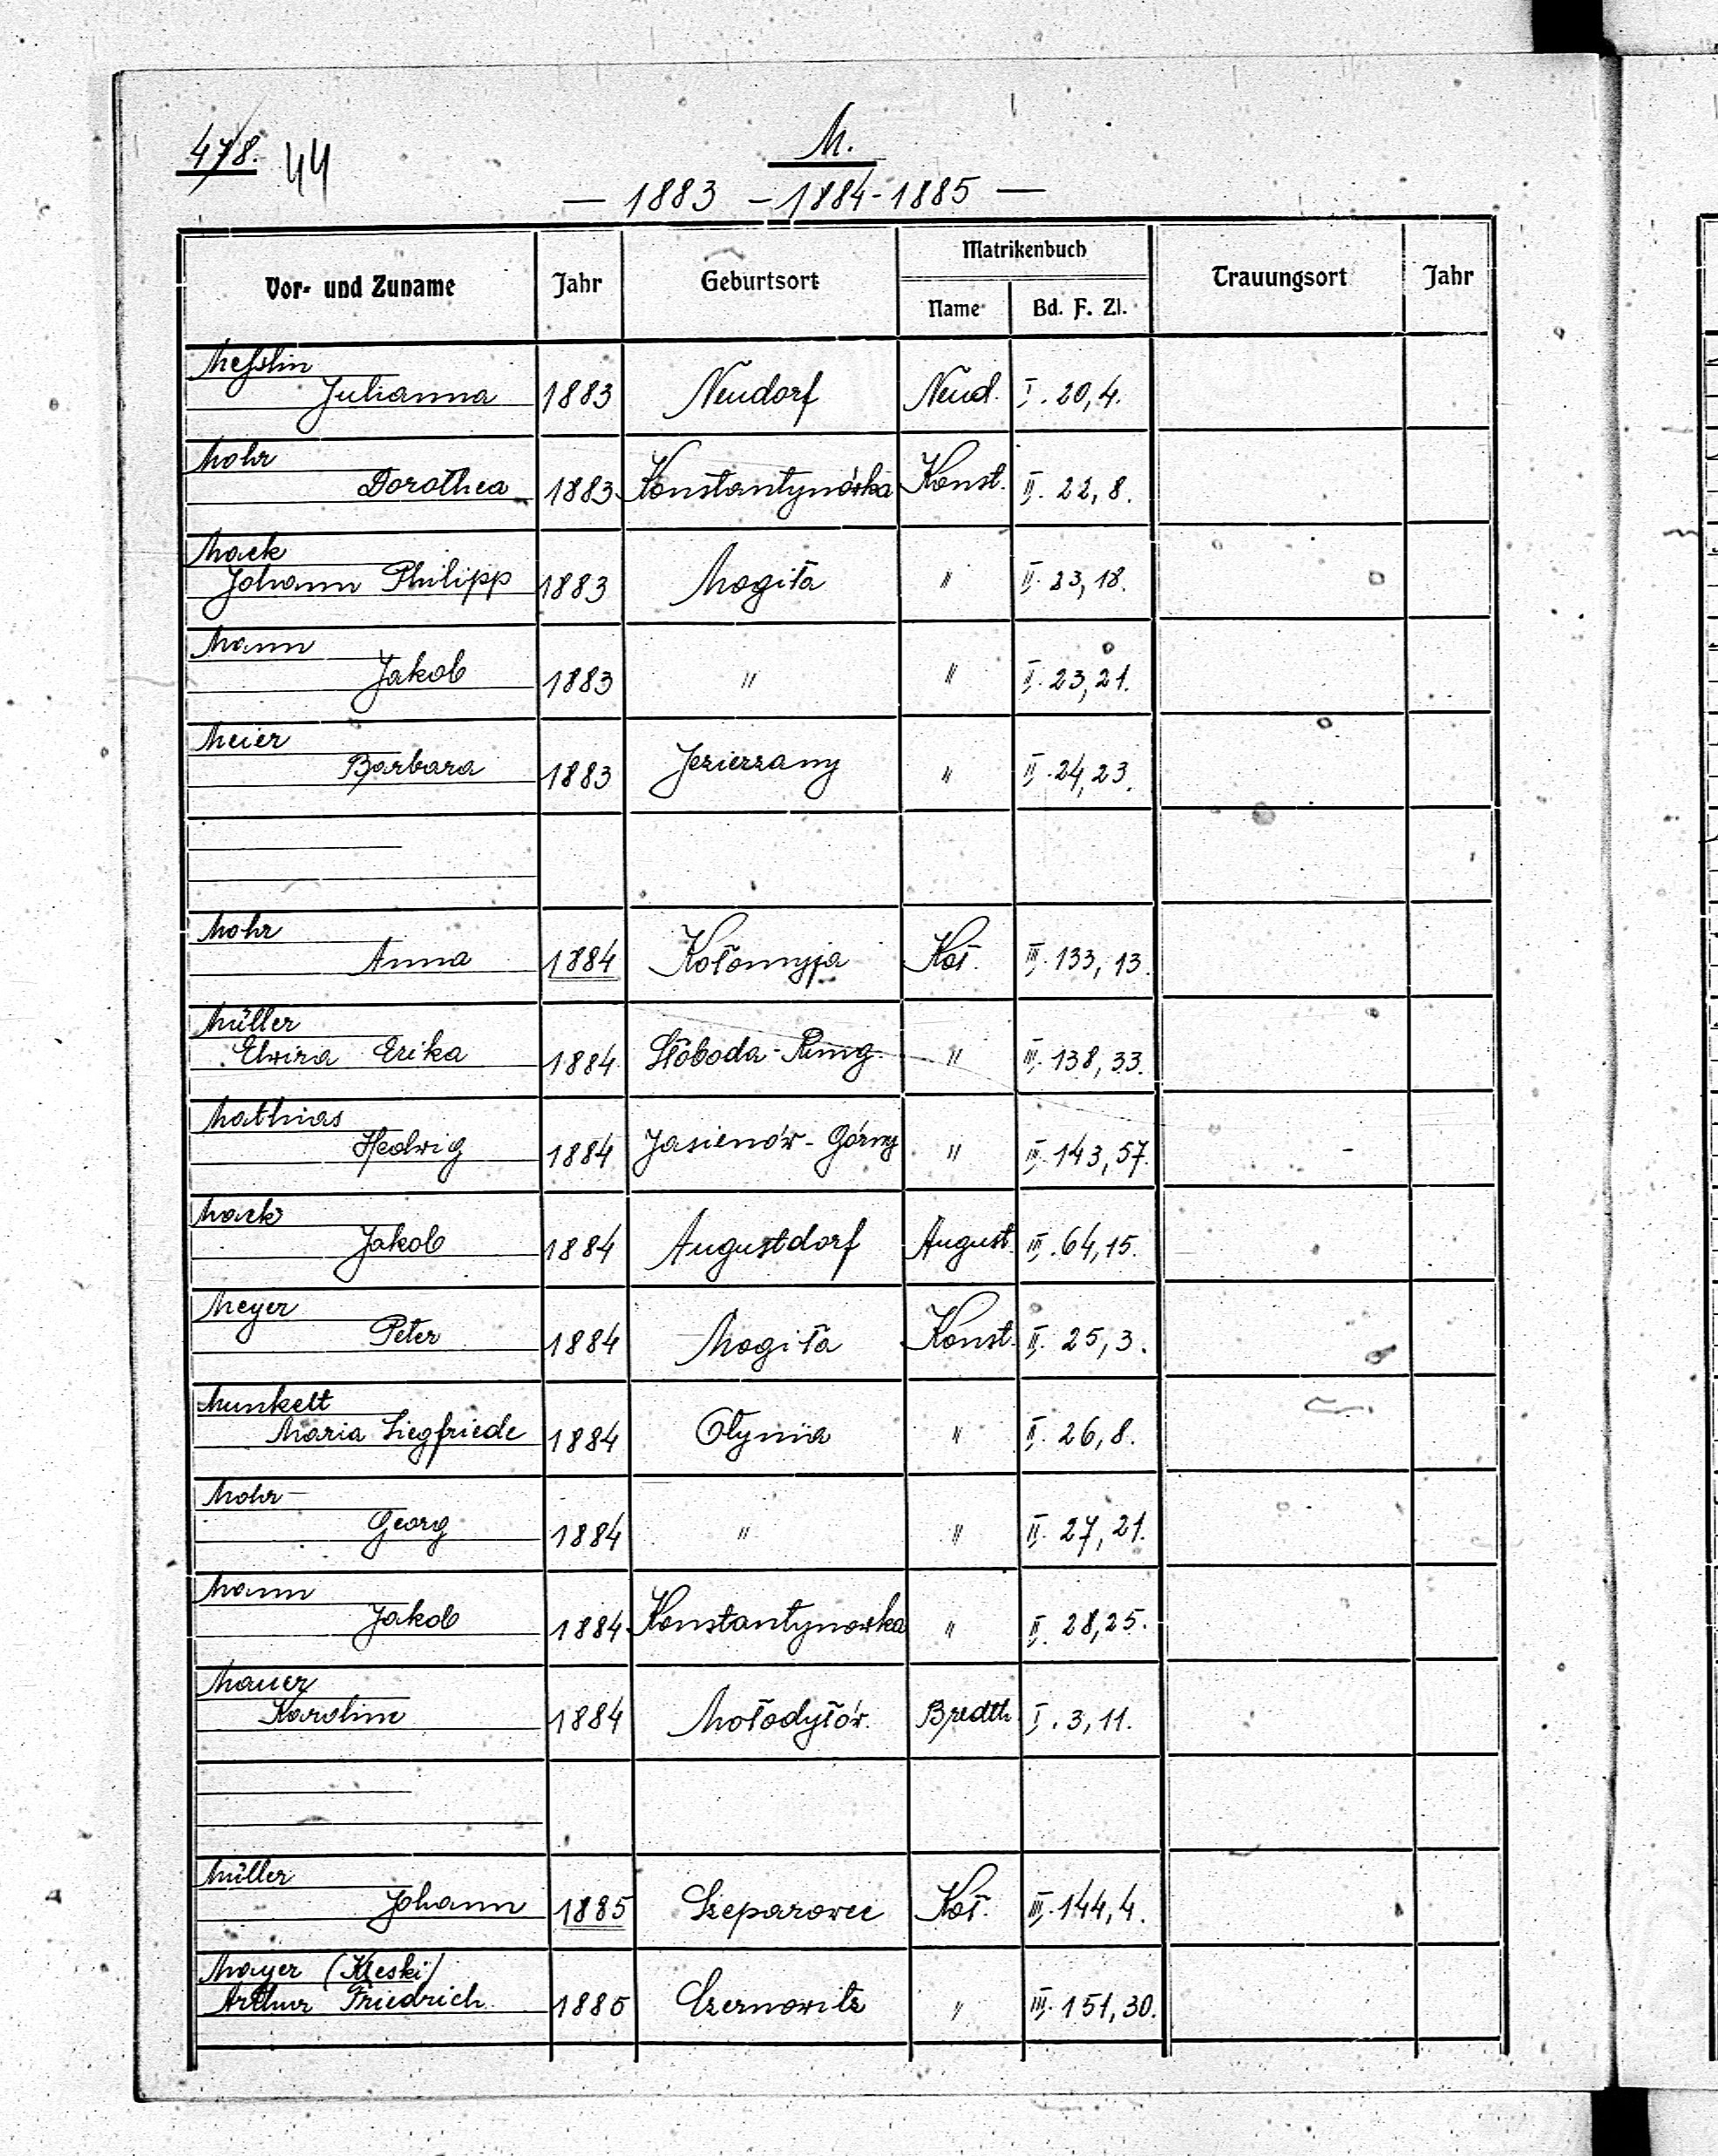 478. 44
M.
— 1883 – 1884 - 1885 —
Vor- und Zuname Jahr Geburtsort Matrikenbuch Trauungsort Jahr
Name Bd. F. Zl.
Messlin
Julianna 1883 Neudorf Neud. I. 20, 4.
Mohr
Dorothea 1883 Konstantynówka Konst. II. 22, 8.
Mack
Johann Philipp 1883 Mogiła " II. 23, 18.
Mann
Jakob 1883 " " II. 23, 21.
Meier
Barbara 1883 Jezierzany " II. 24, 23.
Mohr
Anna 1884 Kołomyja Koł. III. 133, 13.
Müller
Elwira Erika 1884 Słoboda-Rung. " III. 138, 33.
Mathias
Hedwig 1884 Jasienów-Górny " III. 143, 57.
Mack
Jakob 1884 Augustdorf August. III. 64, 15.
Meyer
Peter 1884 Mogiła Konst. II. 25, 3.
Munkelt
Maria Siegfriede 1884 Otynia " II. 26, 8.
Mohr
Georg 1884 " " II. 27, 21.
Mann
Jakob 1884 Konstantynowka " II. 28, 25.
Mauer
Karoline 1884 Mołodyłów. Bredth. I. 3, 11.
Müller
Johann 1885 Szeparowce Koł. III. 144, 4.
Mayer (Kreski)
Arthur Friedrich 1885 Czernowitz " III. 151, 30.